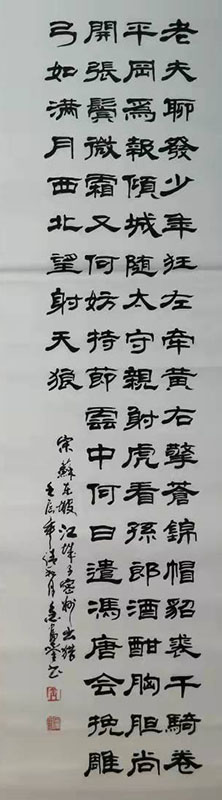 老夫聊發少年狂左牽黃右擎蒼錦帽貂裘千騎卷
平岡爲報傾城隨太守親射虎看孫郎酒酣胸胆尚
開張鬢微霜又何妨持節雲中何日遣馮唐會挽雕
弓如满月西北望射天狼
宋蘇东坡江城子密州出猎
壬辰年月书